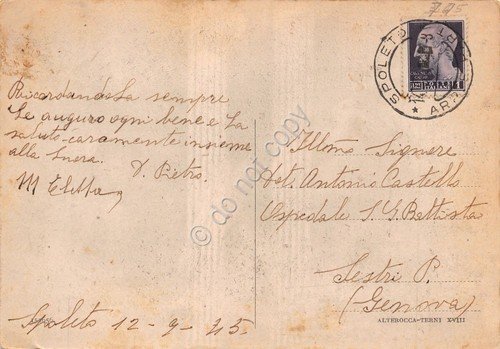 Ricordandola sempre
Le auguro ogni bene e La
saluto caramente insieme
alla Suora. D. Pietro.
M Eletta
Spoleto 12-9-45.
795
SPOLETO
ARR
1
Illmo Signore
Dot. Antonio Castello
Ospedale S. G. Battista
Sestri P.
(Genova)
ALTEROCCA-TERNI XVIII
do not copy